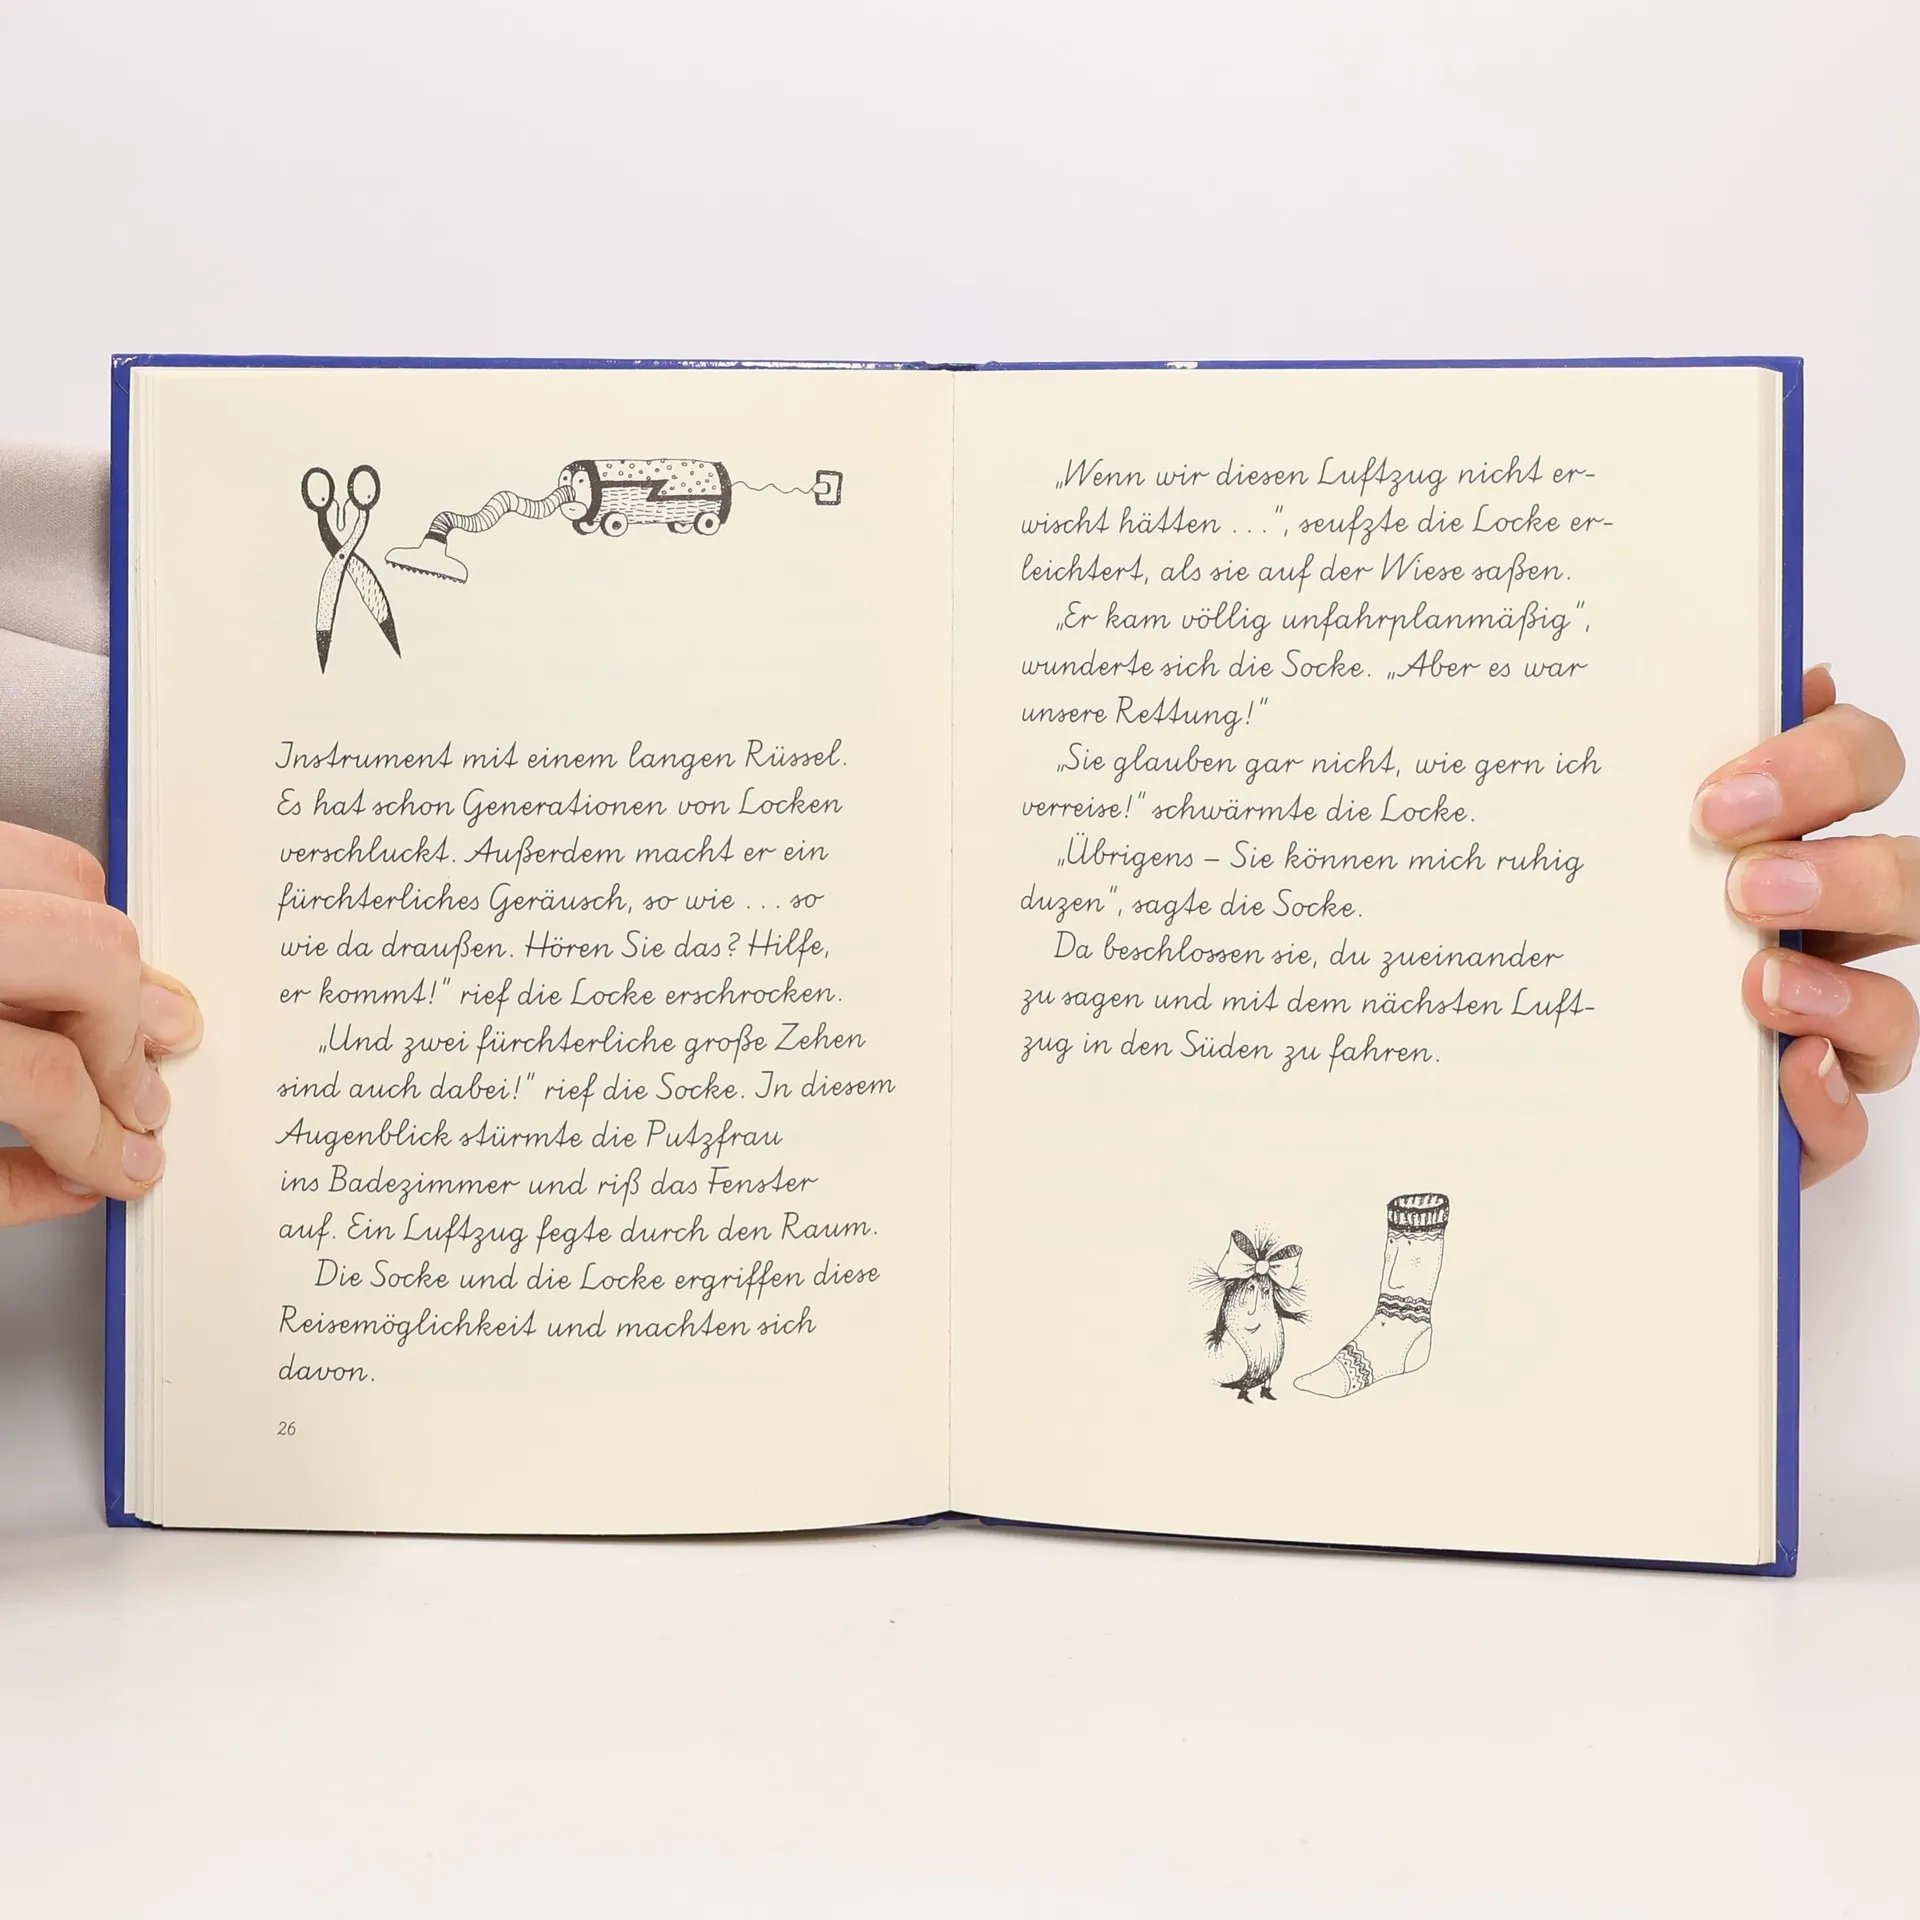 Instrument mit einem langen Rüssel.
Es hat schon Generationen von Locken
verschluckt. Außerdem macht er ein
fürchterliches Geräusch, so wie ... so
wie da draußen. Hören Sie das? Hilfe,
er kommt!" rief die Locke erschrocken.
„Und zwei fürchterliche große Zehen
sind auch dabei!" rief die Socke. In diesem
Augenblick stürmte die Putzfrau
ins Badezimmer und riß das Fenster
auf. Ein Luftzug fegte durch den Raum.
Die Socke und die Locke ergriffen diese
Reisemöglichkeit und machten sich
davon.
26
„Wenn wir diesen Luftzug nicht er-
wischt hätten ...", seufzte die Locke er-
leichtert, als sie auf der Wiese saßen.
„Er kam völlig unfahrplanmäßig",
wunderte sich die Socke. „Aber es war
unsere Rettung!"
„Sie glauben gar nicht, wie gern ich
verreise!" schwärmte die Locke.
„Übrigens – Sie können mich ruhig
duzen", sagte die Socke.
Da beschlossen sie, du zueinander
zu sagen und mit dem nächsten Luft-
zug in den Süden zu fahren.